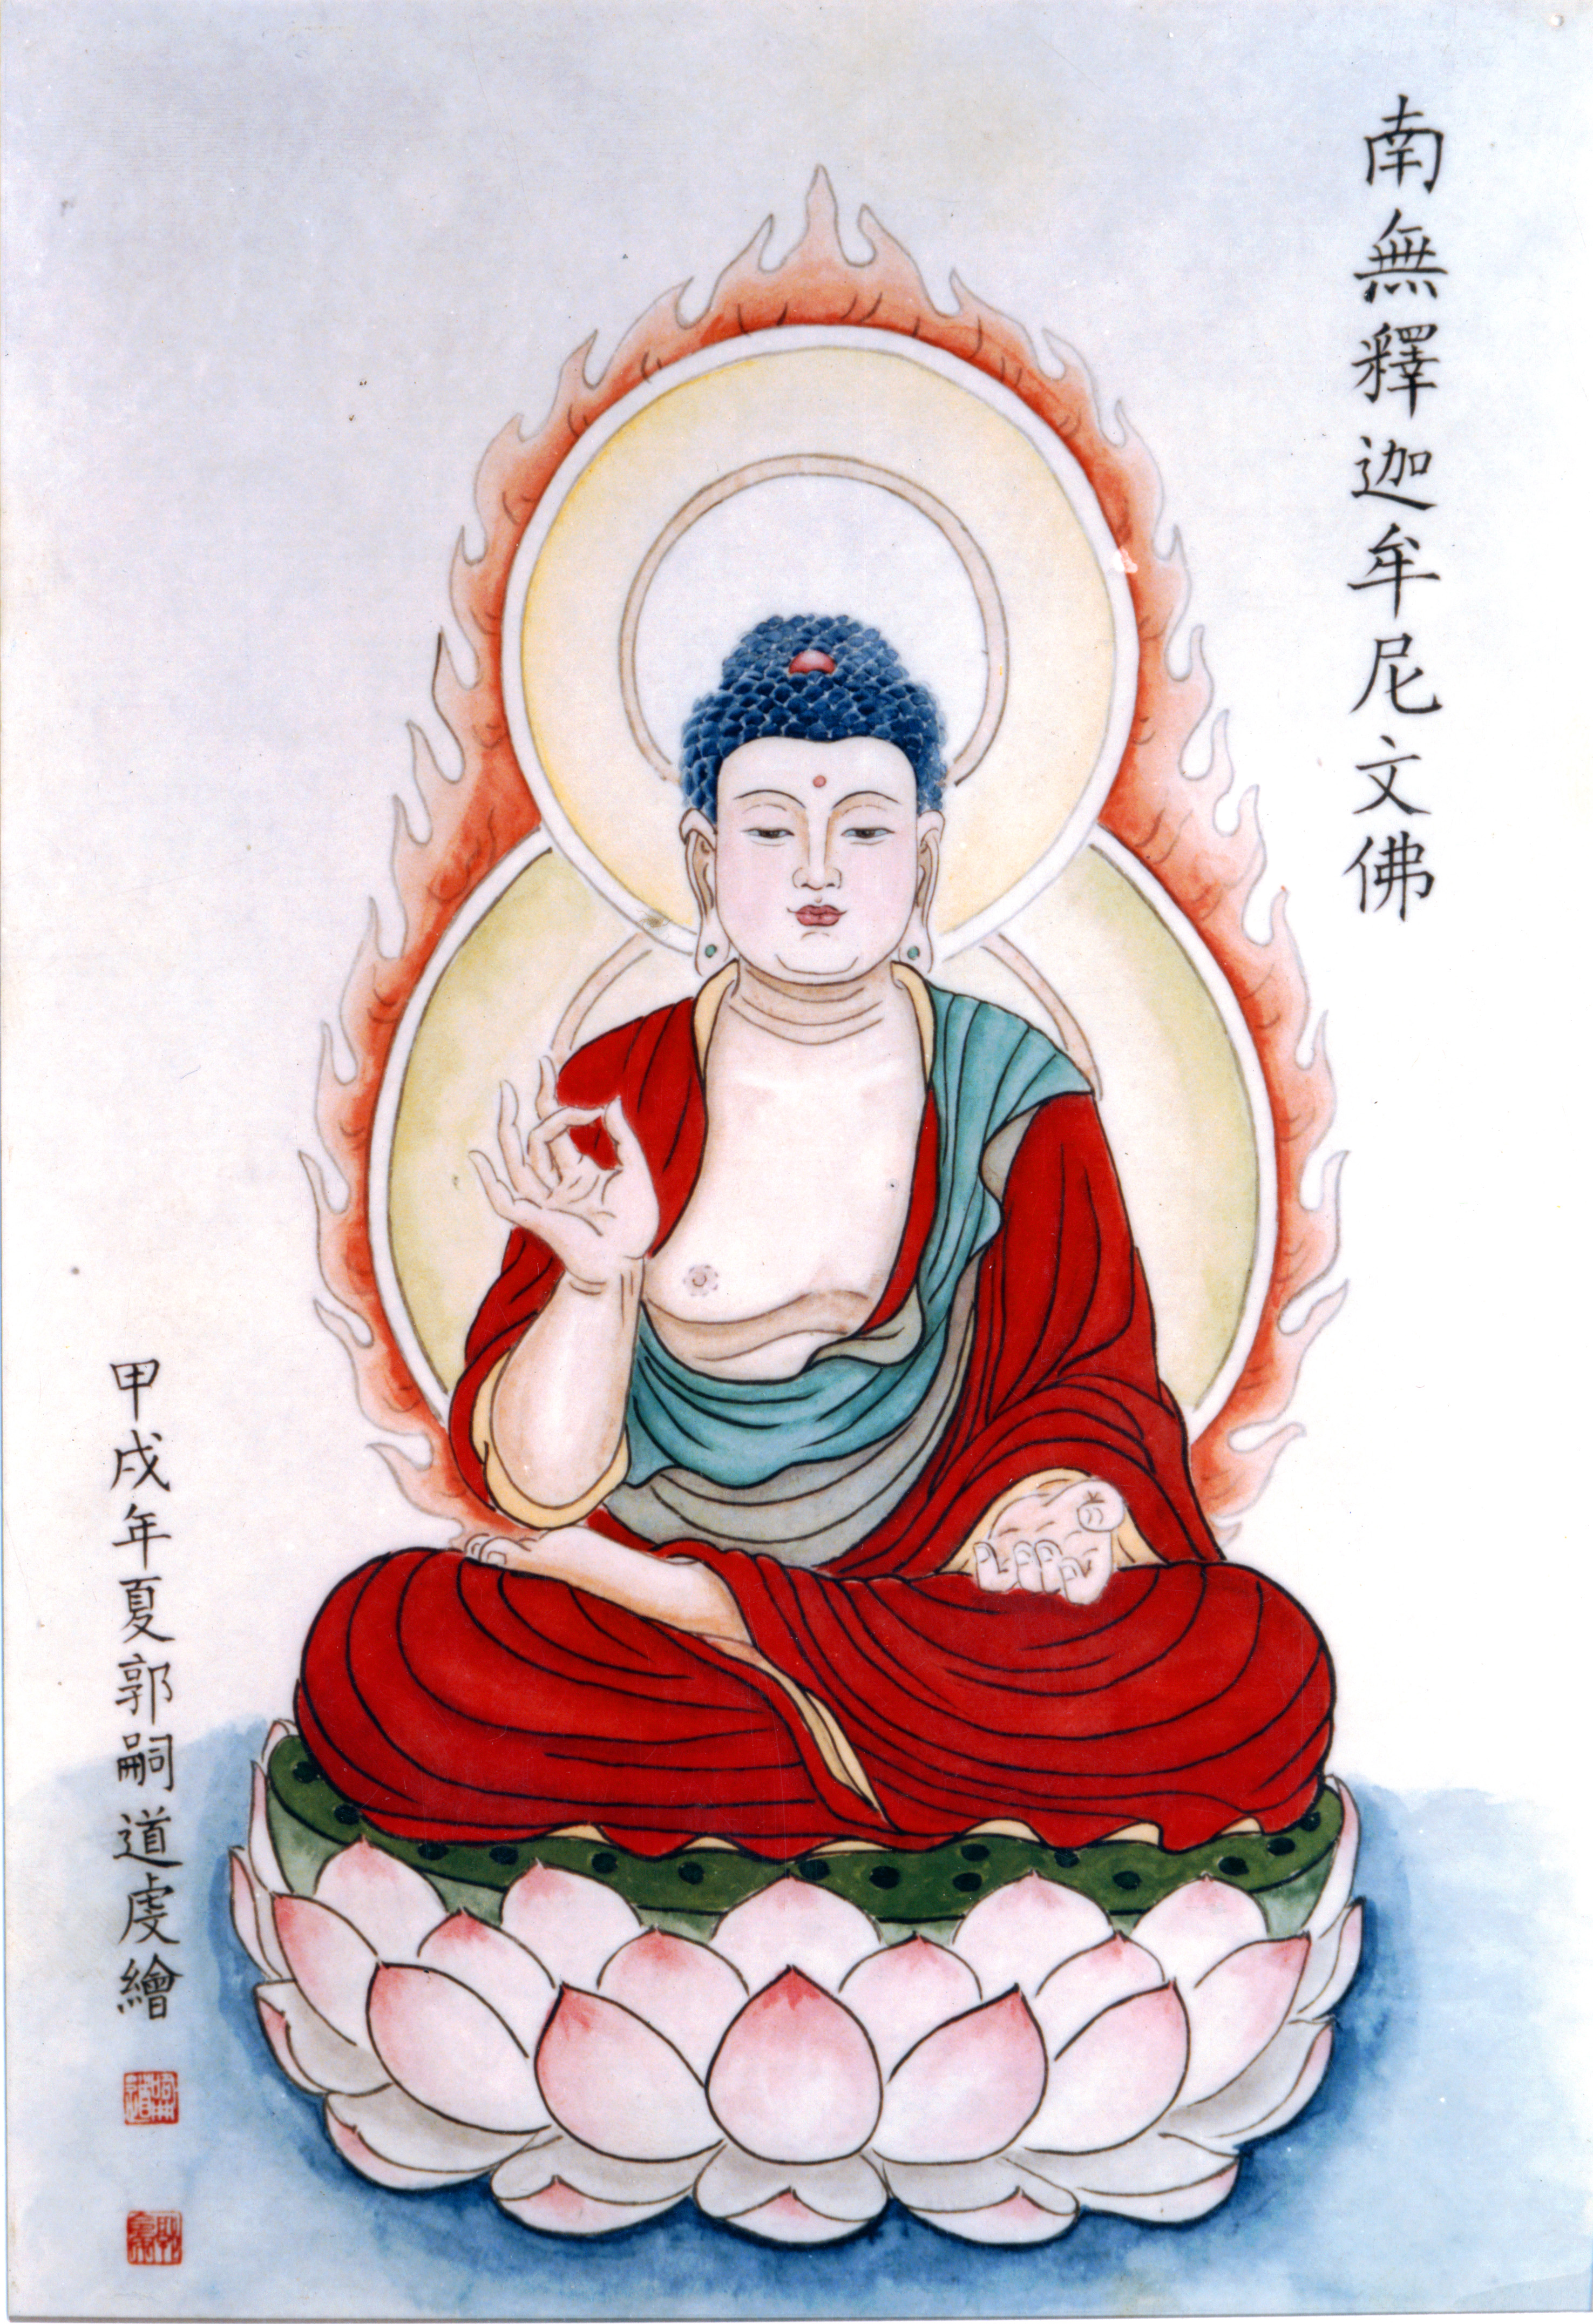 南無釋迦牟尼文佛
甲戌年夏郭嗣道虔繪